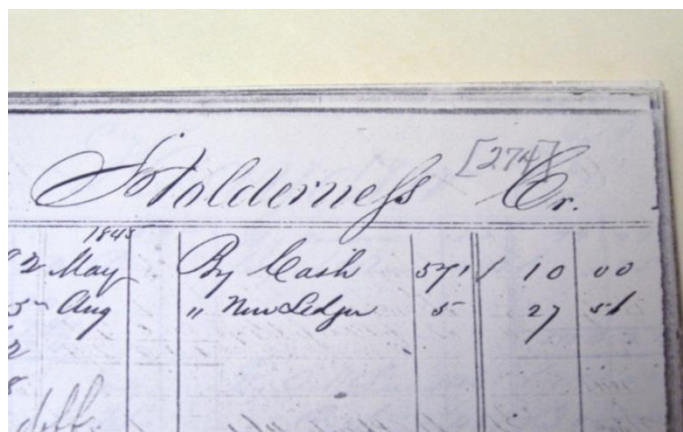 Holderness [274] Cr.
1845
2 May By Cash 571 10 00
5 Aug " New Ledger 5 27 51
2
8